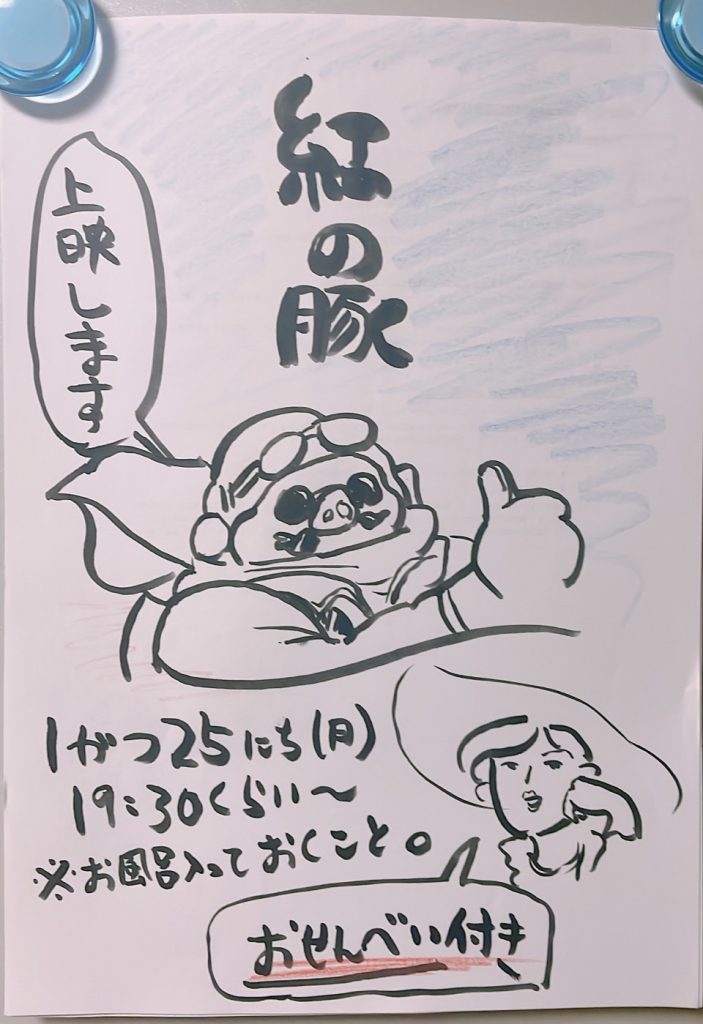 紅の豚
上映します
1がつ25にち(月)
19:30くらい〜
※お風呂入っておくこと。
おせんべい付き